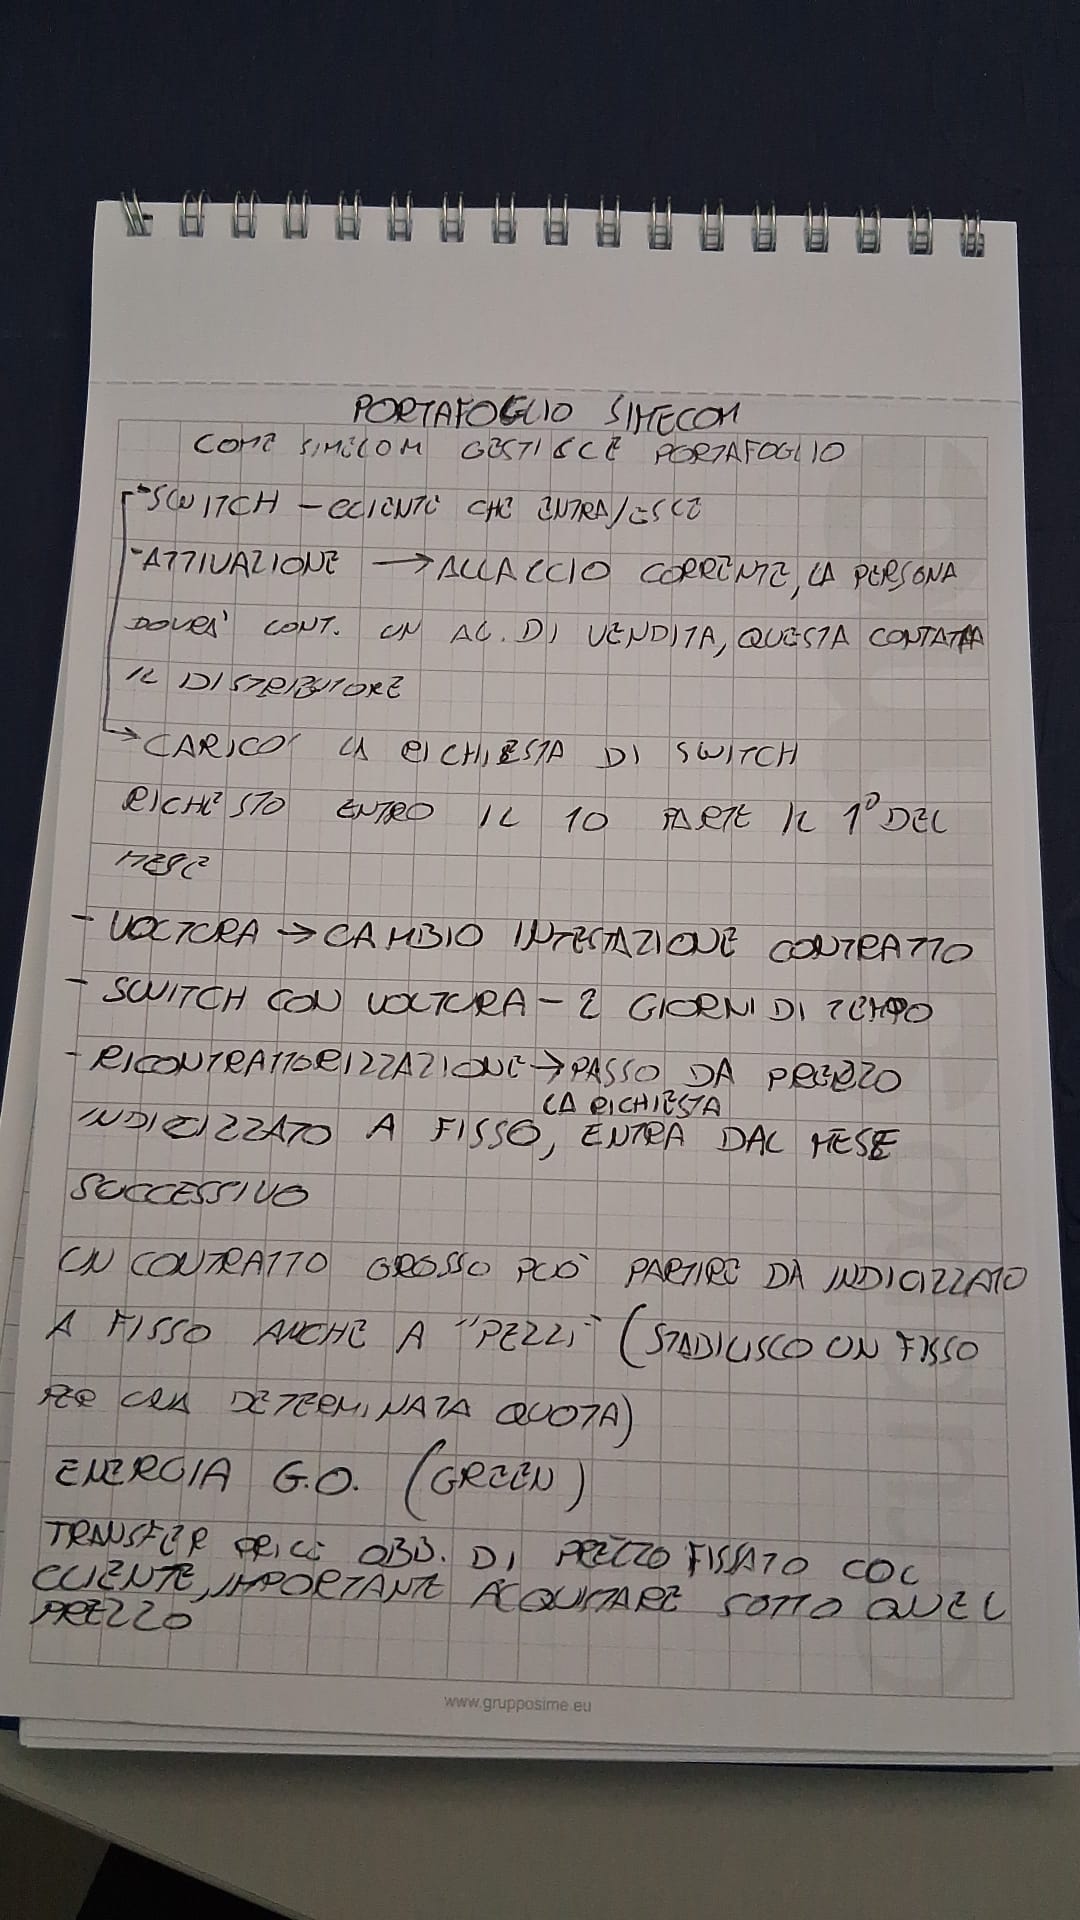 PORTAFOGLIO SIMECOM
COME SIMECOM GESTISCE PORTAFOGLIO
- SWITCH - CLIENTE CHE ENTRA/ESCE
- ATTIVAZIONE → ALLACCIO CORRENTE, LA PERSONA
DOVRA' CONT. UN AG. DI VENDITA, QUESTA CONTATTA
IL DISTRIBUTORE
→ CARICO LA RICHIESTA DI SWITCH
RICHESTO ENTRO IL 10 PARTE IL 1° DEL
MESE
- VOLTURA → CAMBIO INTESTAZIONE CONTRATTO
- SWITCH CON VOLTURA - 2 GIORNI DI TEMPO
- RICONTRATTORIZZAZIONE → PASSO DA PREZZO
LA RICHIESTA
INDICIZZATO A FISSO, ENTRA DAL MESE
SUCCESSIVO
UN CONTRATTO GROSSO PUO' PARTIRE DA INDICIZZATO
A FISSO ANCHE A "PEZZI" (STABILISCO UN FISSO
PER UNA DETERMINATA QUOTA)
ENERGIA G.O. (GREEN)
TRANSFER PRICE OBB. DI PREZZO FISSATO COL
CLIENTE, IMPORTANTE ACQUITARE SOTTO QUEL
PREZZO
www.grupposime.eu
Gruppo Sime